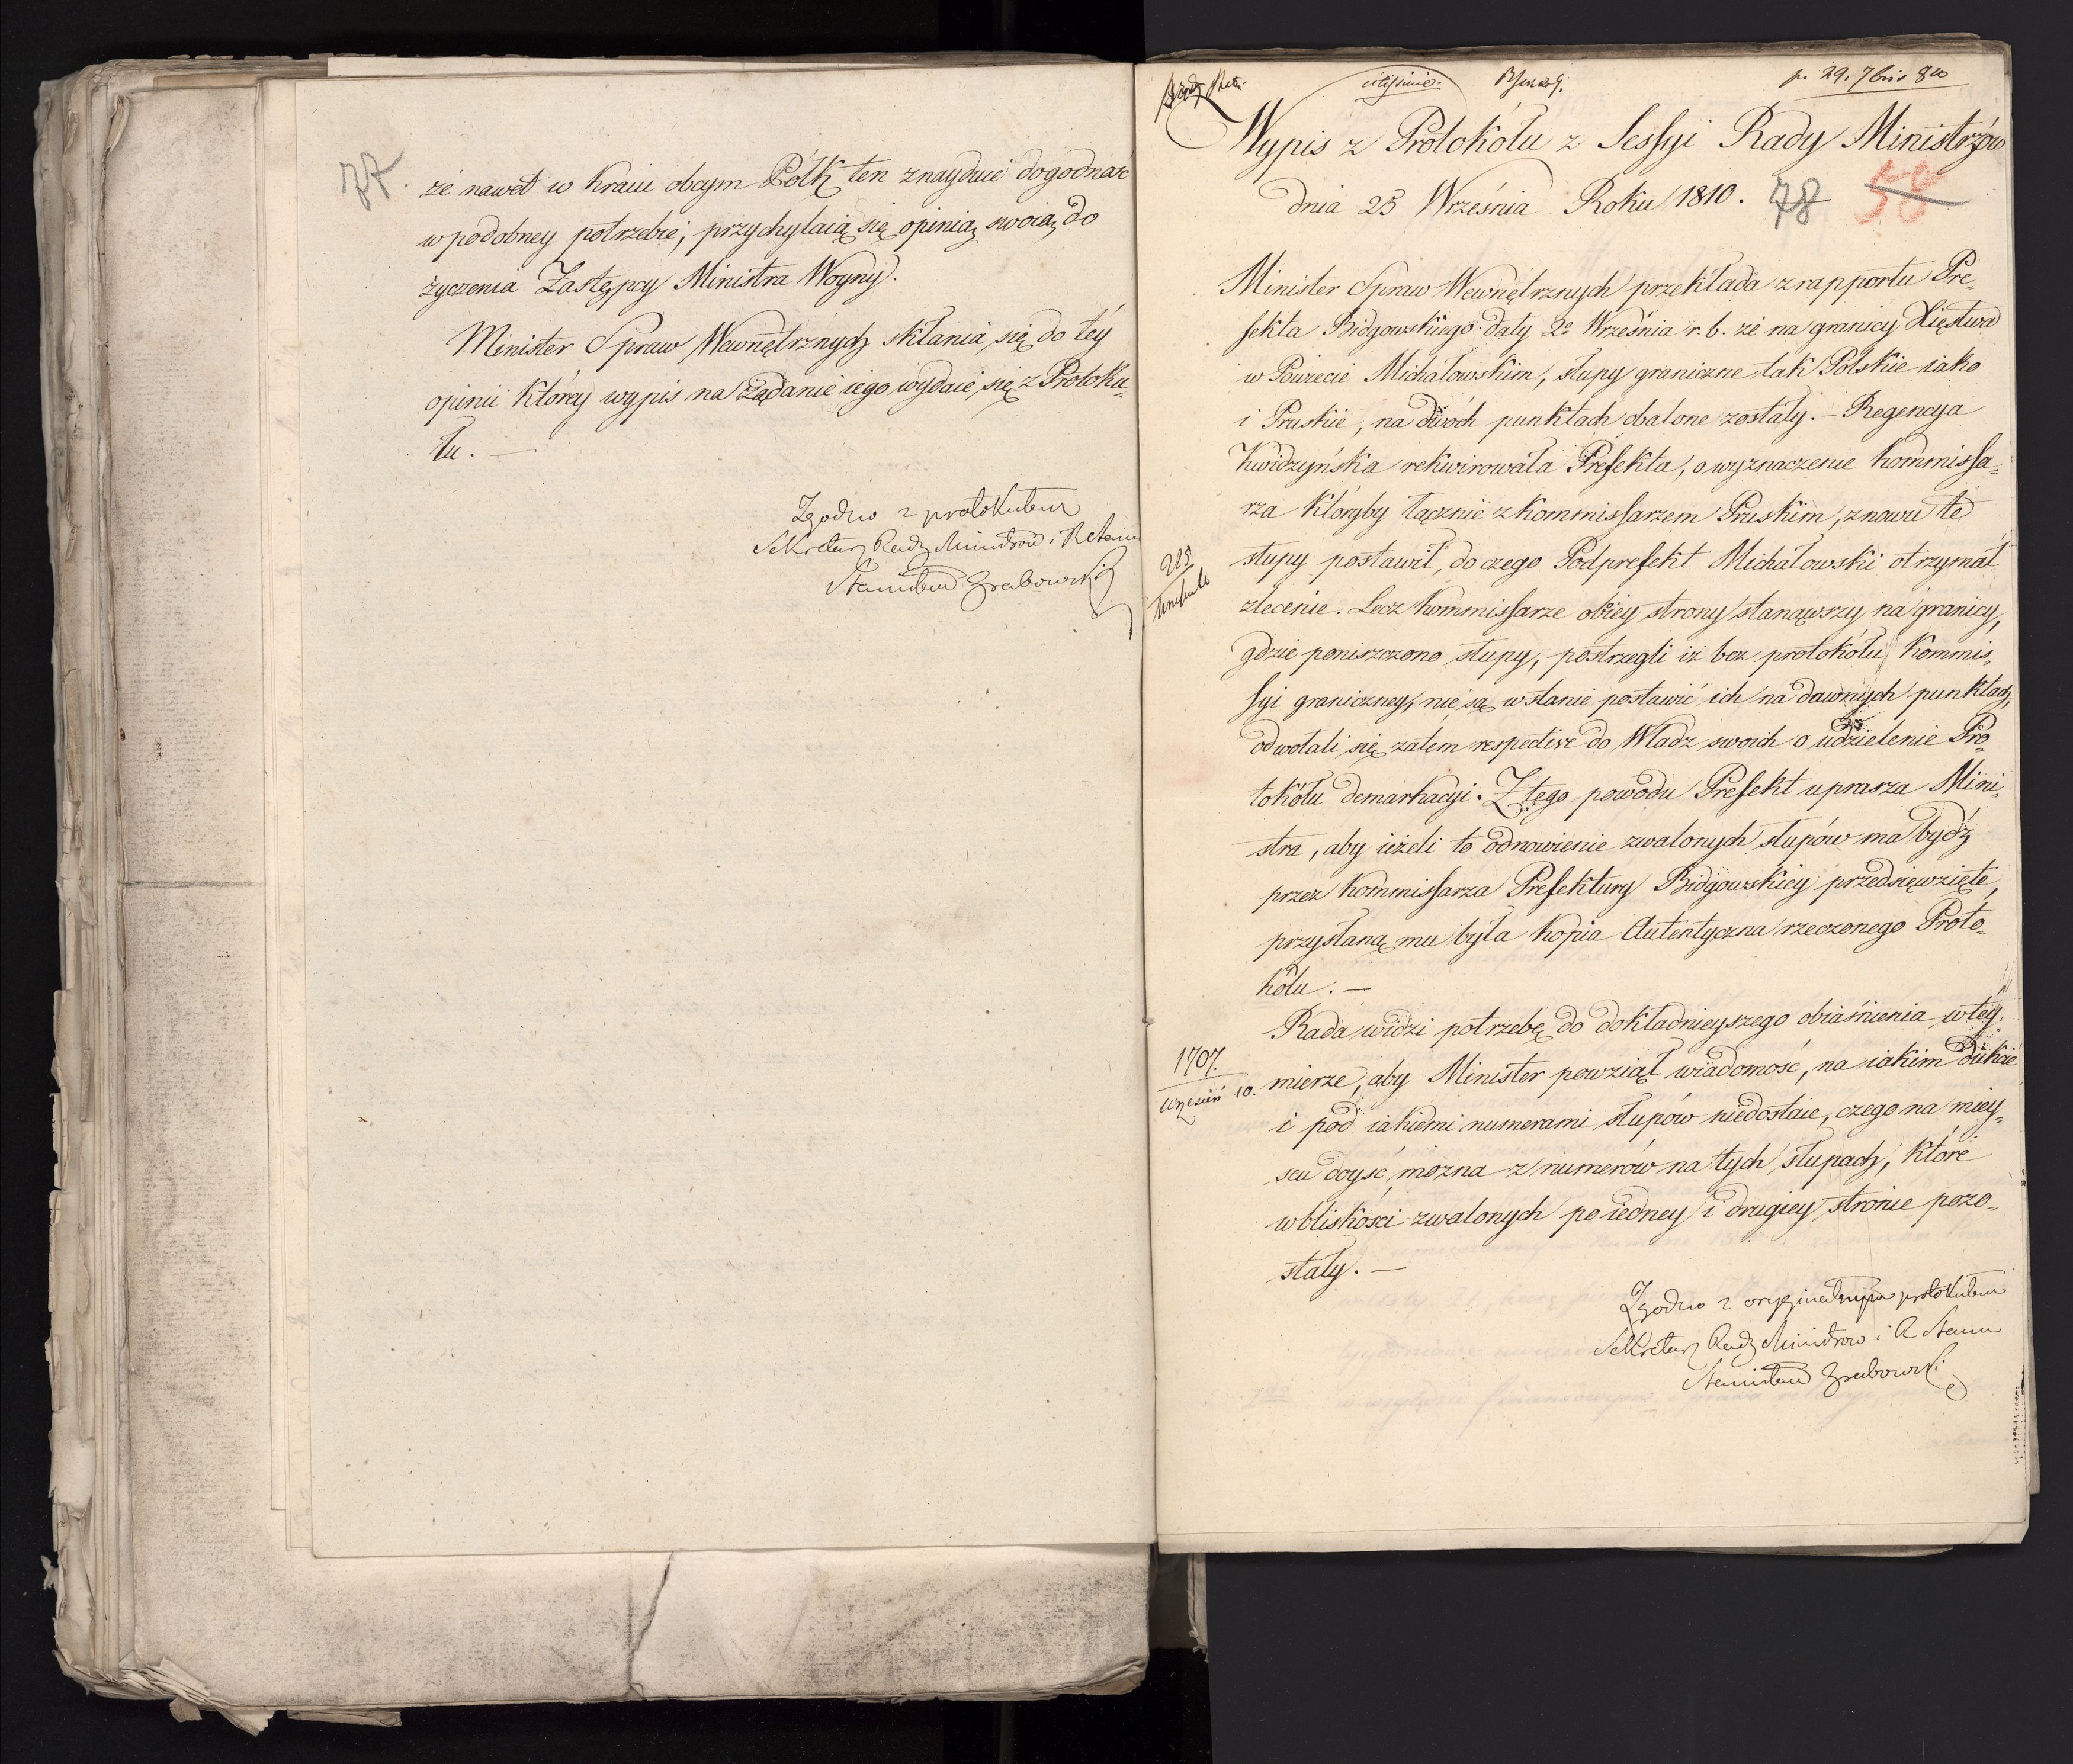 77.
że nawet w kraiu obcym Pólk ten znayduie dogodność
w podobney potrzebie, przychylaią się opinią swoią do
życzenia Zastępcy Ministra Woyny.
Minister Spraw Wewnętrznych skłania się do téy
opinii któréy wypis na żądanie iego wydaie się z Protoku-
łu. —
Zgodno z protokułem
Sekretarz Rady Ministrów i R Stanu
Stanisław Grabowski
p. 29. 7bris 810
Wypis z Protokółu z Sessyi Rady Ministrów
dnia 25 Września Roku 1810. 78 58
Minister Spraw Wewnętrznych przekłada z rapportu Pre-
fekta Bidgowskiego daty 2º Września r. b. że na granicy Xięstwa
w Powiecie Michałowskim, słupy graniczne tak Polskie iako
i Pruskie, na dwóch punktach obalone zostały. — Regencya
Kwidzyńska rekwirowała Prefekta, o wyznaczenie Kommissa-
rza któryby łącznie z Kommissarzem Pruskim, znowu te
słupy postawił, do czego Podprefekt Michałowski otrzymał
zlecenie. Lecz Kommissarze obiey strony stanąwszy na granicy,
gdzie poniszczono słupy, postrzegli iż bez protokółu Kommis-
syi graniczney, nie są w stanie postawić ich na dawnych punktach,
odwołali się zatem respective do Władz swoich o udzielenie Pro-
tokółu demarkacyi. Z tego powodu Prefekt uprasza Mini-
stra, aby ieżeli to odnowienie zwalonych słupów ma bydź
przez Kommissarza Prefektury Bidgowskiey przedsięwzięte,
przysłaną mu była kopia Autentyczna rzeczonego Proto-
kółu. —
Rada widzi potrzebę do dokładnieyszego obiaśnienia w téy
mierze, aby Minister powziął wiadomość, na iakim dukcie
i pod iakiemi numerami słupów niedostaie, czego na miey-
scu doyść można z numerów na tych słupach, które
w bliskości zwalonych po iedney i drugiey stronie pozo-
stały. —
215
1707.
Wrzesień 10.
Zgodno z oryginalnym protokułem
Sekretarz Rady Ministrów i R Stanu
Stanisław Grabowski